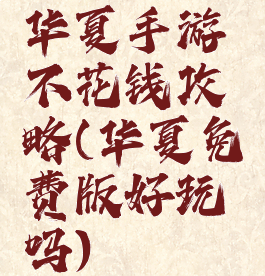 华夏手游
不花钱攻
略(华夏免
费版好玩
吗)